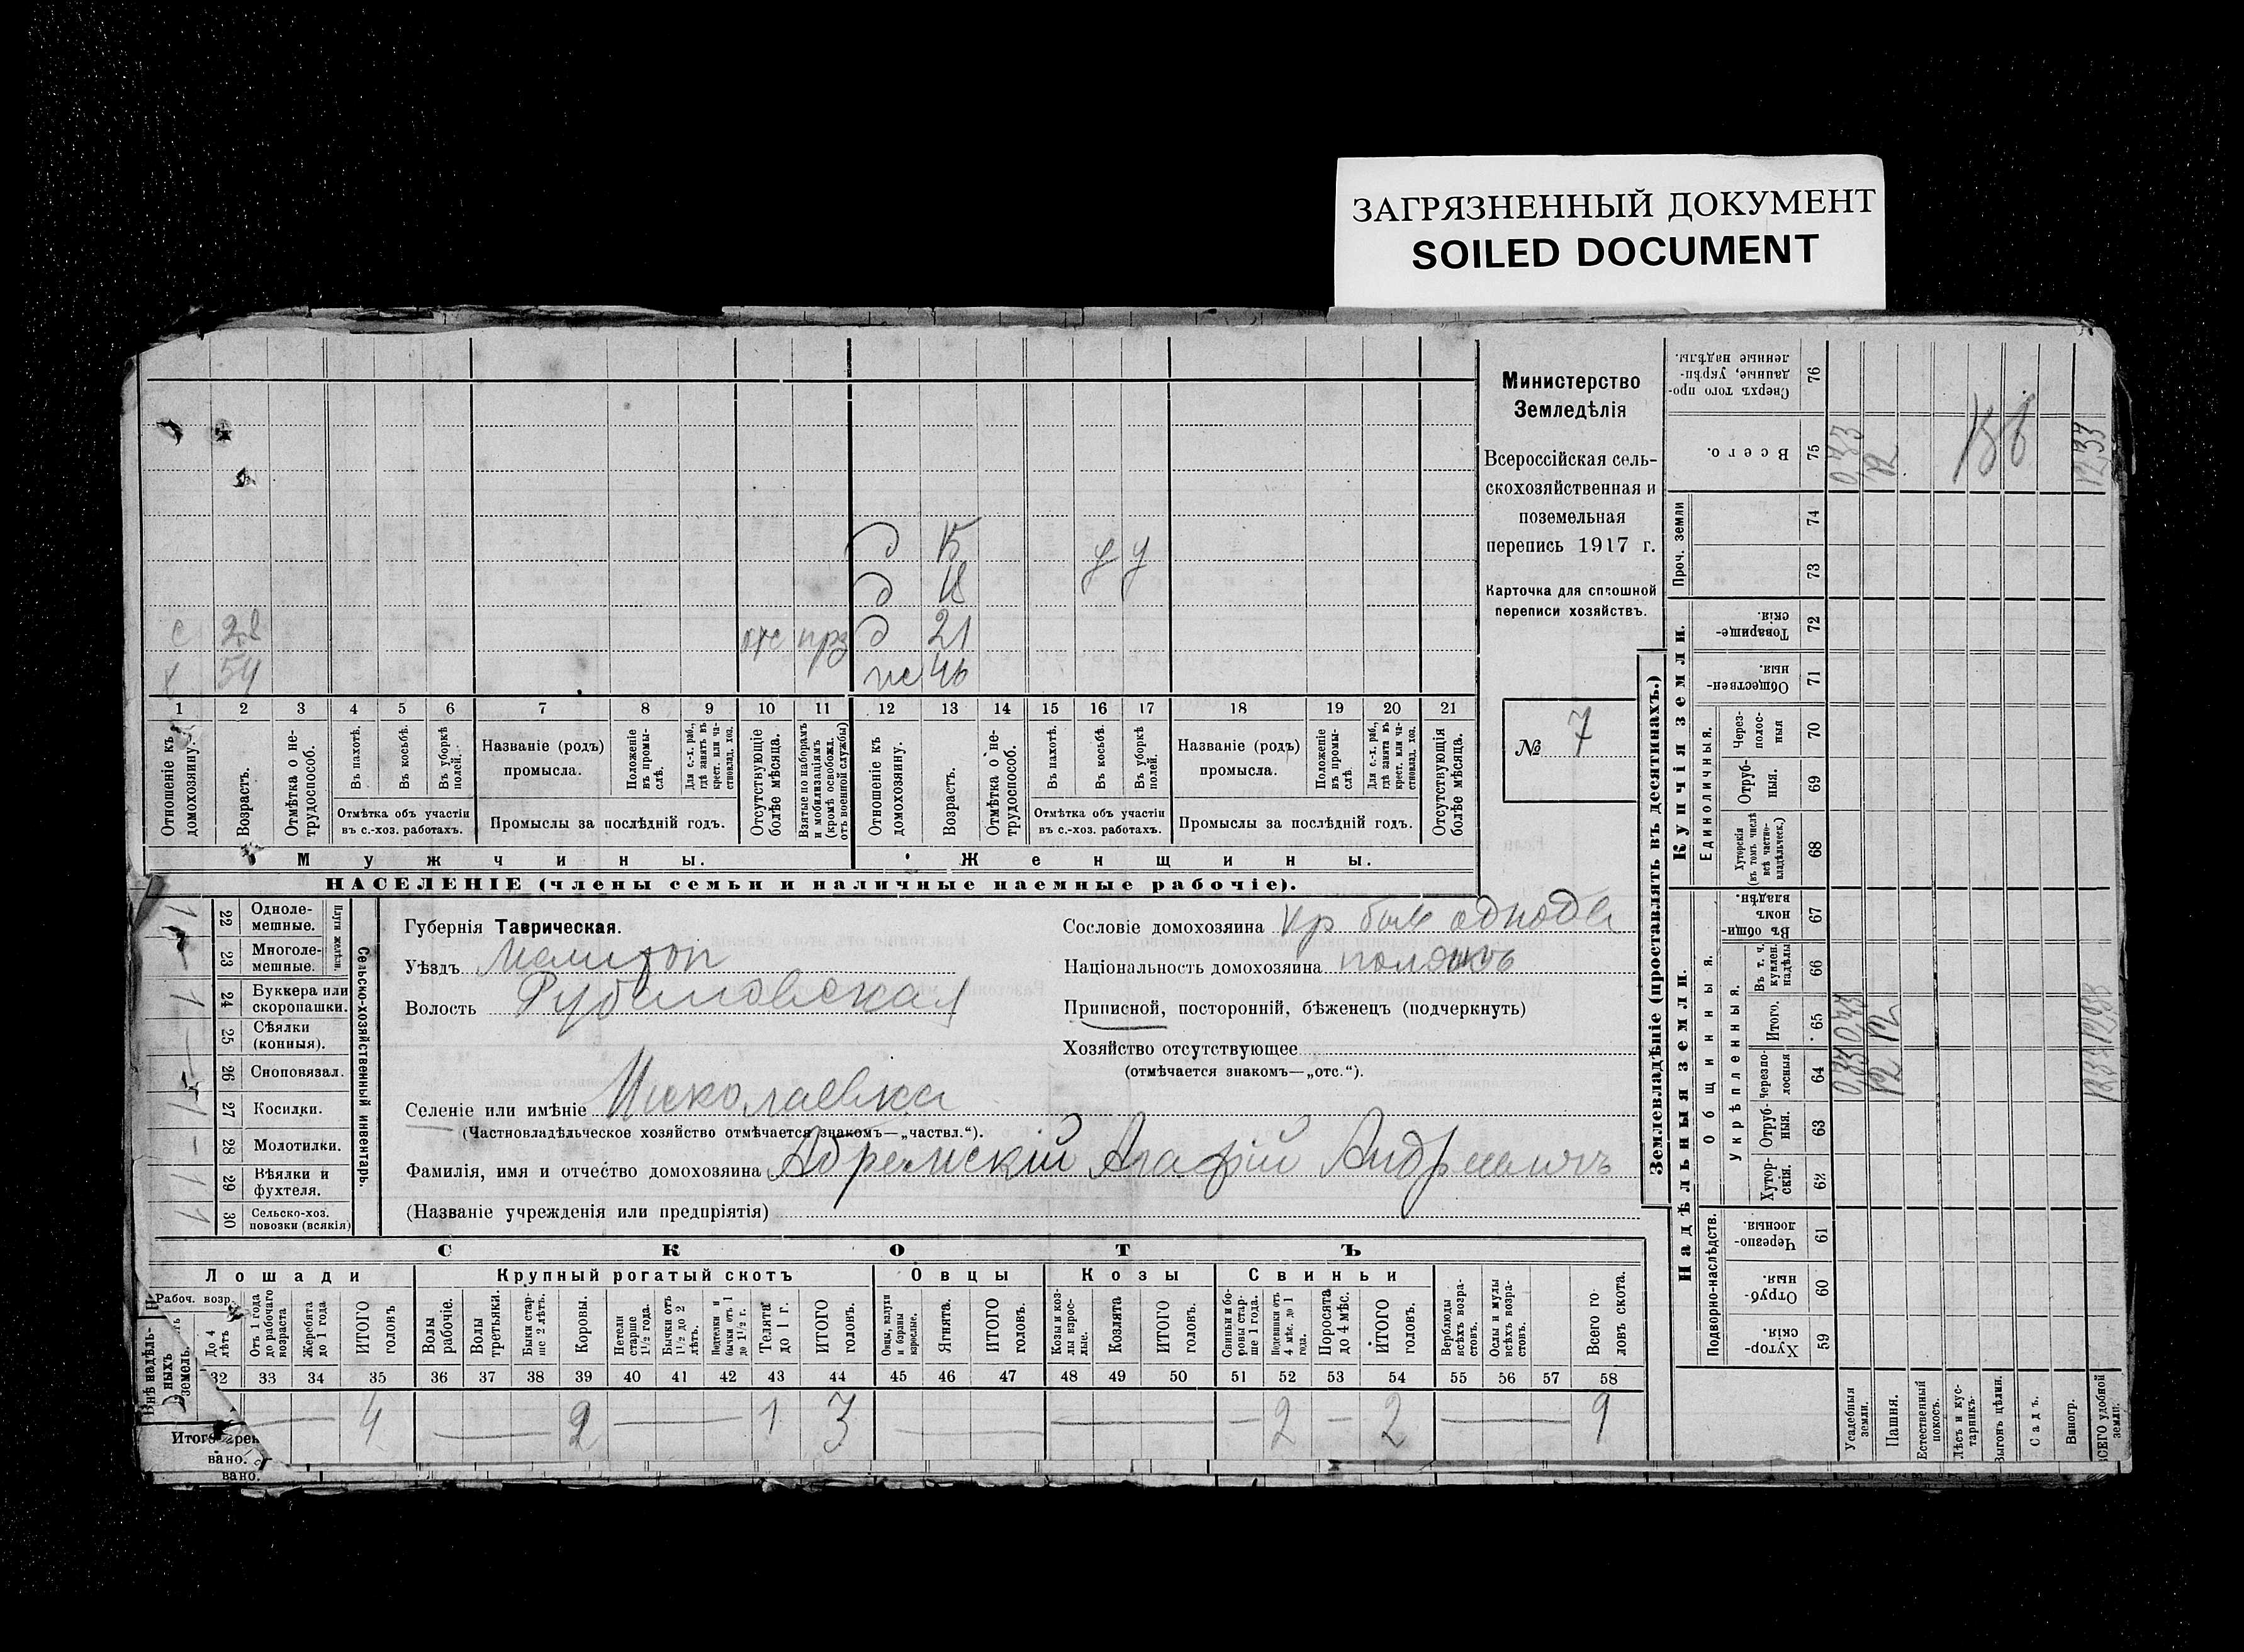 ЗАГРЯЗНЕННЫЙ ДОКУМЕНТ
SOILED DOCUMENT
Министерство
Земледѣлія
Всероссійская сель-
скохозяйственная и
поземельная
перепись 1917 г.
Карточка для сплошной
переписи хозяйствъ.
№ 7
д 15 у у
д 18
с 28 отс д 21
х 54 46
1 2 3 4 5 6 7 8 9 10 11 12 13 14 15 16 17 18 19 20 21
Отношеніе къ домохозяину.
Возрастъ.
Отмѣтка о не-трудоспособ.
Въ пахотѣ.
Въ косьбѣ.
Въ уборкѣ полей.
Отмѣтка объ участіи
въ с.-хоз. работахъ.
Названіе (родъ)
промысла.
Положеніе въ промы-слѣ.
Для с.-х. раб., гдѣ занятъ въ крест. или ча-стновлад. хоз.
Промыслы за послѣдній годъ.
Отсутствующіе болѣе мѣсяца.
Взятые по наборамъ и мобилизаціямъ (кромѣ освобожд. отъ военной службы)
Отношеніе къ домохозяину.
Возрастъ.
Отмѣтка о не-трудоспособ.
Въ пахотѣ.
Въ косьбѣ.
Въ уборкѣ полей.
Отмѣтка объ участіи
въ с.-хоз. работахъ.
Названіе (родъ)
промысла.
Положеніе въ промы-слѣ.
Для с.-х. раб., гдѣ занята въ крест. или ча-стновлад. хоз.
Промыслы за послѣдній годъ.
Отсутствующія болѣе мѣсяца.
Мужчины. Женщины.
НАСЕЛЕНІЕ (члены семьи и наличные наемные рабочіе).
Сельско-хозяйственный инвентарь.
Плуги желѣзн.
22 Одноле-мешные.
23 Многоле-мешные.
24 Буккера или скоропашки.
25 Сѣялки (конныя).
26 Сноповязал.
27 Косилки.
28 Молотилки.
29 Вѣялки и фухтеля.
30 Сельско-хоз. повозки (всякія)
Губернія Таврическая.
Уѣздъ Мелитоп
Волость Рубановская
Селеніе или имѣніе Николаевка
(Частновладѣльческое хозяйство отмѣчается знакомъ—„частвл.“).
Фамилія, имя и отчество домохозяина Абрамскій Агафій Андреевичъ
(Названіе учрежденія или предпріятія)
Сословіе домохозяина кр
Національность домохозяина
Приписной, посторонній, бѣженецъ (подчеркнуть)
Хозяйство отсутствующее
(отмѣчается знакомъ—„отс.“).
СКОТЪ
Лошади Крупный рогатый скотъ Овцы Козы Свиньи
Рабоч. возр.
До 4 лѣтъ
Отъ 1 года до рабочаго возраста
Жеребята до 1 года
ИТОГО головъ
Волы рабочіе.
Волы третьяки.
Быки стар-ше 2 лѣтъ.
Коровы.
Нетели старше 1½ года.
Бычки отъ 1½ до 2 лѣтъ.
Подтелки и бычки отъ 1 до 1½ г.
Телята до 1 г.
ИТОГО головъ.
Овцы, валухи и бараны взрослые.
Ягнята.
ИТОГО головъ.
Козы и коз-лы взрос-лые.
Козлята
ИТОГО головъ.
Свиньи и бо-ровы стар-ше 1 года.
Подсвинки отъ 4 мѣс. до 1 года.
Поросята до 4 мѣс.
ИТОГО головъ.
Верблюды всѣхъ возра-стовъ.
Ослы и мулы всѣхъ возра-стовъ.
Всего го-ловъ скота.
32 33 34 35 36 37 38 39 40 41 42 43 44 45 46 47 48 49 50 51 52 53 54 55 56 57 58
4 2 1 3 2 2 9
Внѣ надѣль-ныхъ земель.
вано.
вано.
Землевладѣніе (проставлять въ десятинахъ.)
Надѣльныя земли. Купчія земли.
Проч. земли
Подворно-наслѣдств.
Общинныя.
Укрѣпленныя.
Единоличныя.
Сверхъ того про-данные, укрѣп-ленные надѣлы. 76
Всего. 75
74
73
Товарище-скія. 72
Обществен-ныя. 71
Через-полос-ныя 70
Отруб-ныя. 69
Хуторскія (въ томъ числѣ всѣ частно-владѣльческ.) 68
Въ общин-номъ владѣн. 67
Въ т. ч. куплен. надѣлы 66
Итого. 65
Черезпо-лосныя 64
Отруб-ныя. 63
Хутор-скія. 62
Черезпо-лосныя. 61
Отруб-ныя. 60
Хутор-скія. 59
Усадебныя земли.
Пашня.
Естественный покосъ.
Лѣсъ и кус-тарникъ.
Выгонъ цѣлин.
Садъ.
Виногр.
ВСЕГО удобной земли.
0,33
12
12,33
0,33 0,33
12 12
12,33 12,33